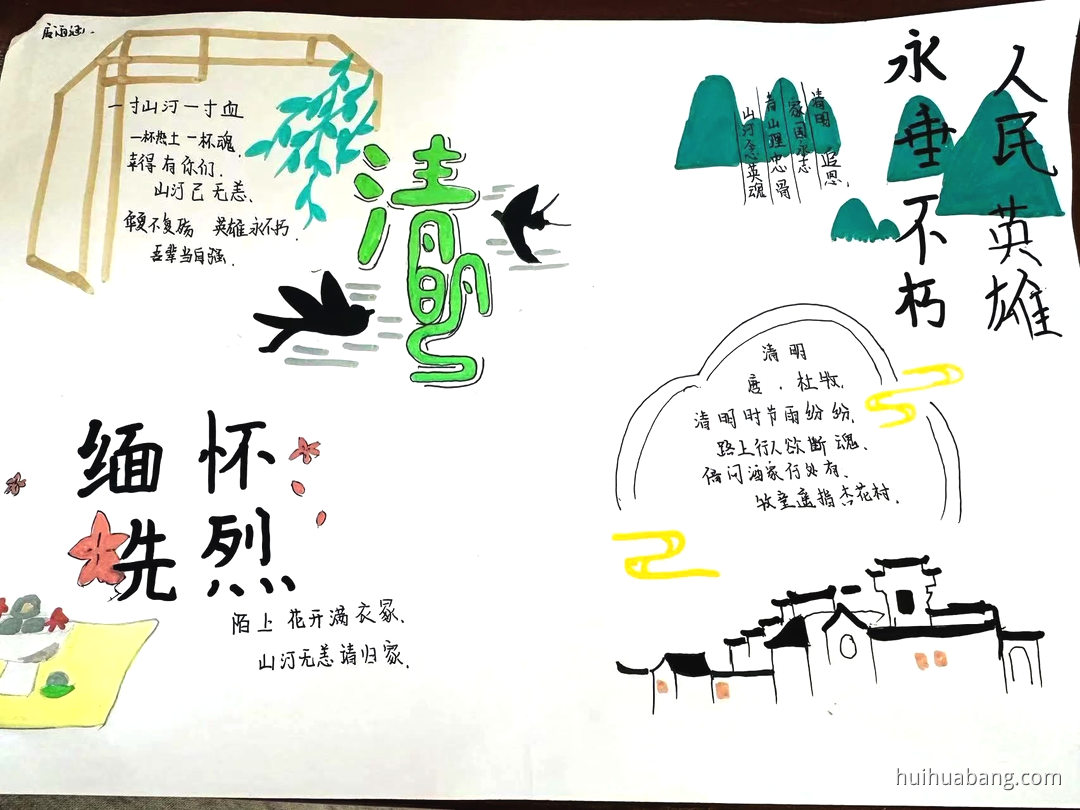 一寸山河一寸血
一杯热土一杯魂.
幸得有你们.
山河已无恙.
不复 英雄永不朽.
吾辈当自强.
清明
清明 追思.
家国永志
青山理忠骨
山河念英魂
人民英雄
永垂不朽
清明
唐.杜牧.
清明时节雨纷纷.
路上行人欲断魂.
借问酒家何处有.
牧童遥指杏花村.
缅怀
先烈
陌上花开满衣冢.
山河无恙请归家.
huihuabang.com